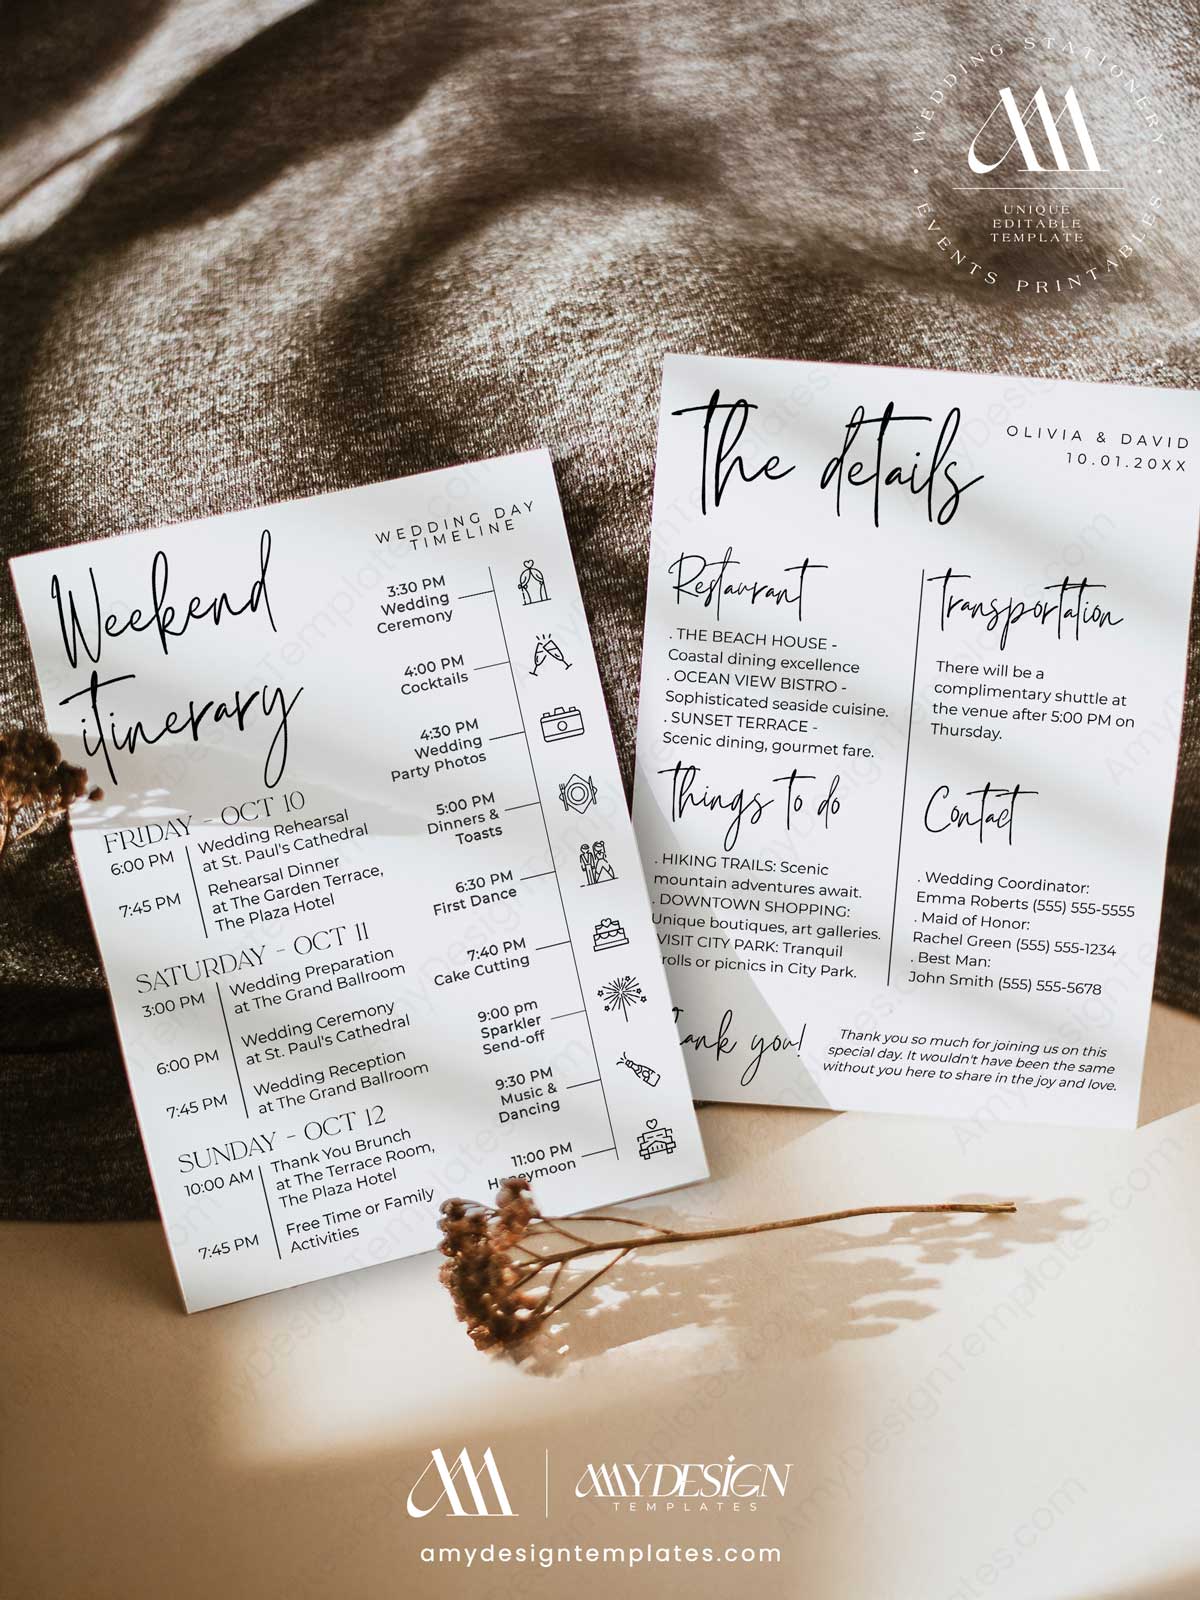 WEDDING STATIONERY
UNIQUE
EDITABLE
TEMPLATE
EVENTS PRINTABLES
Weekend
itinerary
FRIDAY - OCT 10
6:00 PM
Wedding Rehearsal
at St. Paul's Cathedral
7:45 PM
Rehearsal Dinner
at The Garden Terrace,
The Plaza Hotel
SATURDAY - OCT 11
3:00 PM
Wedding Preparation
at The Grand Ballroom
6:00 PM
Wedding Ceremony
at St. Paul's Cathedral
7:45 PM
Wedding Reception
at The Grand Ballroom
SUNDAY - OCT 12
10:00 AM
Thank You Brunch
at The Terrace Room,
The Plaza Hotel
7:45 PM
Free Time or Family
Activities
WEDDING DAY
TIMELINE
3:30 PM
Wedding
Ceremony
4:00 PM
Cocktails
4:30 PM
Wedding
Party Photos
5:00 PM
Dinners &
Toasts
6:30 PM
First Dance
7:40 PM
Cake Cutting
9:00 pm
Sparkler
Send-off
9:30 PM
Music &
Dancing
11:00 PM
Honeymoon
The details
OLIVIA & DAVID
10.01.20XX
Restaurant
. THE BEACH HOUSE -
Coastal dining excellence
. OCEAN VIEW BISTRO -
Sophisticated seaside cuisine.
. SUNSET TERRACE -
Scenic dining, gourmet fare.
Things to do
. HIKING TRAILS: Scenic
mountain adventures await.
. DOWNTOWN SHOPPING:
Unique boutiques, art galleries.
VISIT CITY PARK: Tranquil
rolls or picnics in City Park.
Transportation
There will be a
complimentary shuttle at
the venue after 5:00 PM on
Thursday.
Contact
. Wedding Coordinator:
Emma Roberts (555) 555-5555
. Maid of Honor:
Rachel Green (555) 555-1234
. Best Man:
John Smith (555) 555-5678
ank you!
Thank you so much for joining us on this
special day. It wouldn't have been the same
without you here to share in the joy and love.
AMYDESIGN
TEMPLATES
amydesigntemplates.com